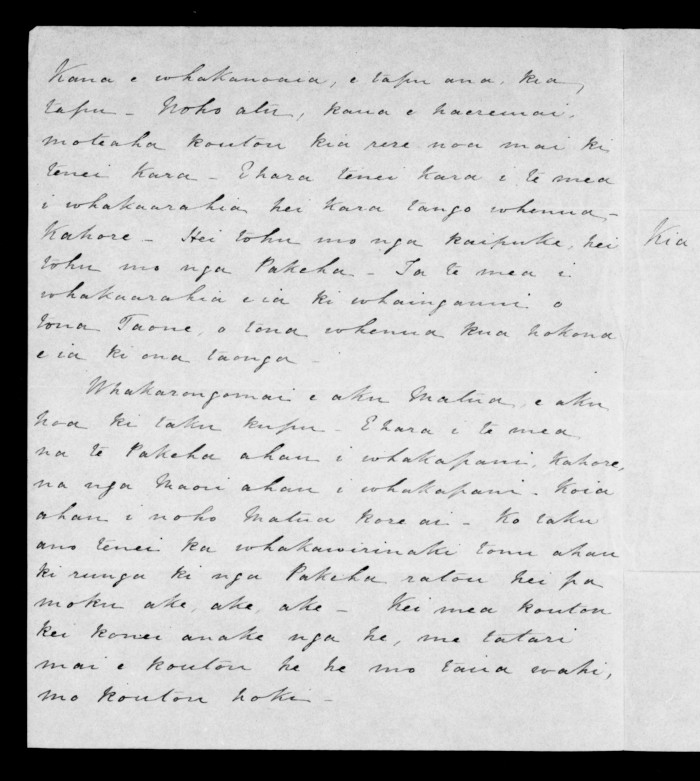 Kaua e whakanoaia, e tapu ana, kia
tapu - Noho atu, kaua e haeremai,
moteaha koutou kia rere noa mai ki
tenei Kara - Ehara tenei Kara i te mea
i whakaarahia hei Kara tango whenua -
Kahore - Hei tohu mo nga kaipuke, hei
tohu mo nga Pakeha - Ta te mea i
whakaarahia e ia ki whainganui o
tona Taone, o tona whenua kua hokona
e ia ki ona taonga -
Whakarongomai e aku Matua, e aku
hoa ki taku kupu - Ehara i te mea
na te Pakeha ahau i whakapani, Kahore,
na nga Maori ahau i whakapani - Koia
ahau i noho Matua kore ai - Ko taku
ano tenei ka whakawirinaki tonu ahau
ki runga ki nga Pakeha ratou hei pa
moku ake, ake, ake - Kei mea koutou
kei konei anake nga he, me tatari
mai e koutou he he mo taua wahi,
mo koutou hoki -
Kia